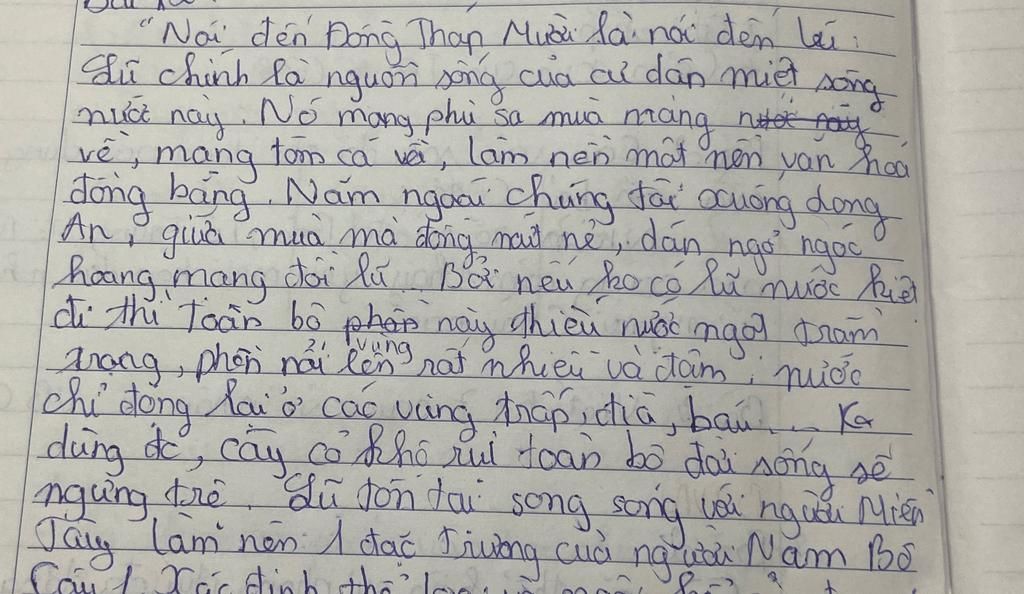 "Nói đến Đồng Tháp Mười là nói đến lũ.
Lũ chính là nguồn sống của cư dân miệt sông
nước này. Nó mang phù sa mùa màng nước này
về, mang tôm cá về, làm nên một nền văn hoá
đồng bằng. Năm ngoái chúng tôi xuống Long
An, giữa mùa mà đồng nứt nẻ, dân ngơ ngác
hoang mang đợi lũ. Bởi nếu ko có lũ nước kiệt
đi thì toàn bộ phần này thiếu nước ngọt trầm
vùng
trọng, phèn nổi lên rất nhiều và đậm, nước
chỉ đọng lại ở các vùng thấp, đìa, bàu... Ko
dùng đc, cây cỏ khô rụi toàn bộ đời sống sẽ
ngưng trệ. Lũ tồn tại song song với người Miền
Tây làm nên 1 đặc trưng của người Nam Bộ
Câu 1. Xác định thể